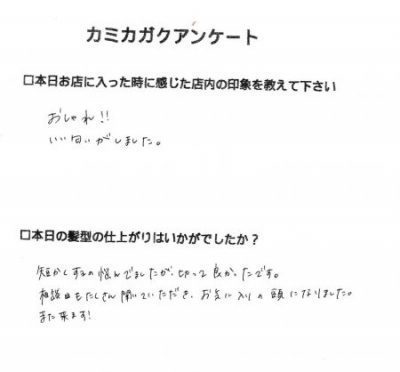 カミカガクアンケート
□本日お店に入った時に感じた店内の印象を教えて下さい
おしゃれ!!
いい匂いがしました。
□本日の髪型の仕上がりはいかがでしたか?
短かくするの悩んでましたが、切って良かったです。
相談もたくさん聞いていただき、お気に入りの頭になりました。
また来ます!